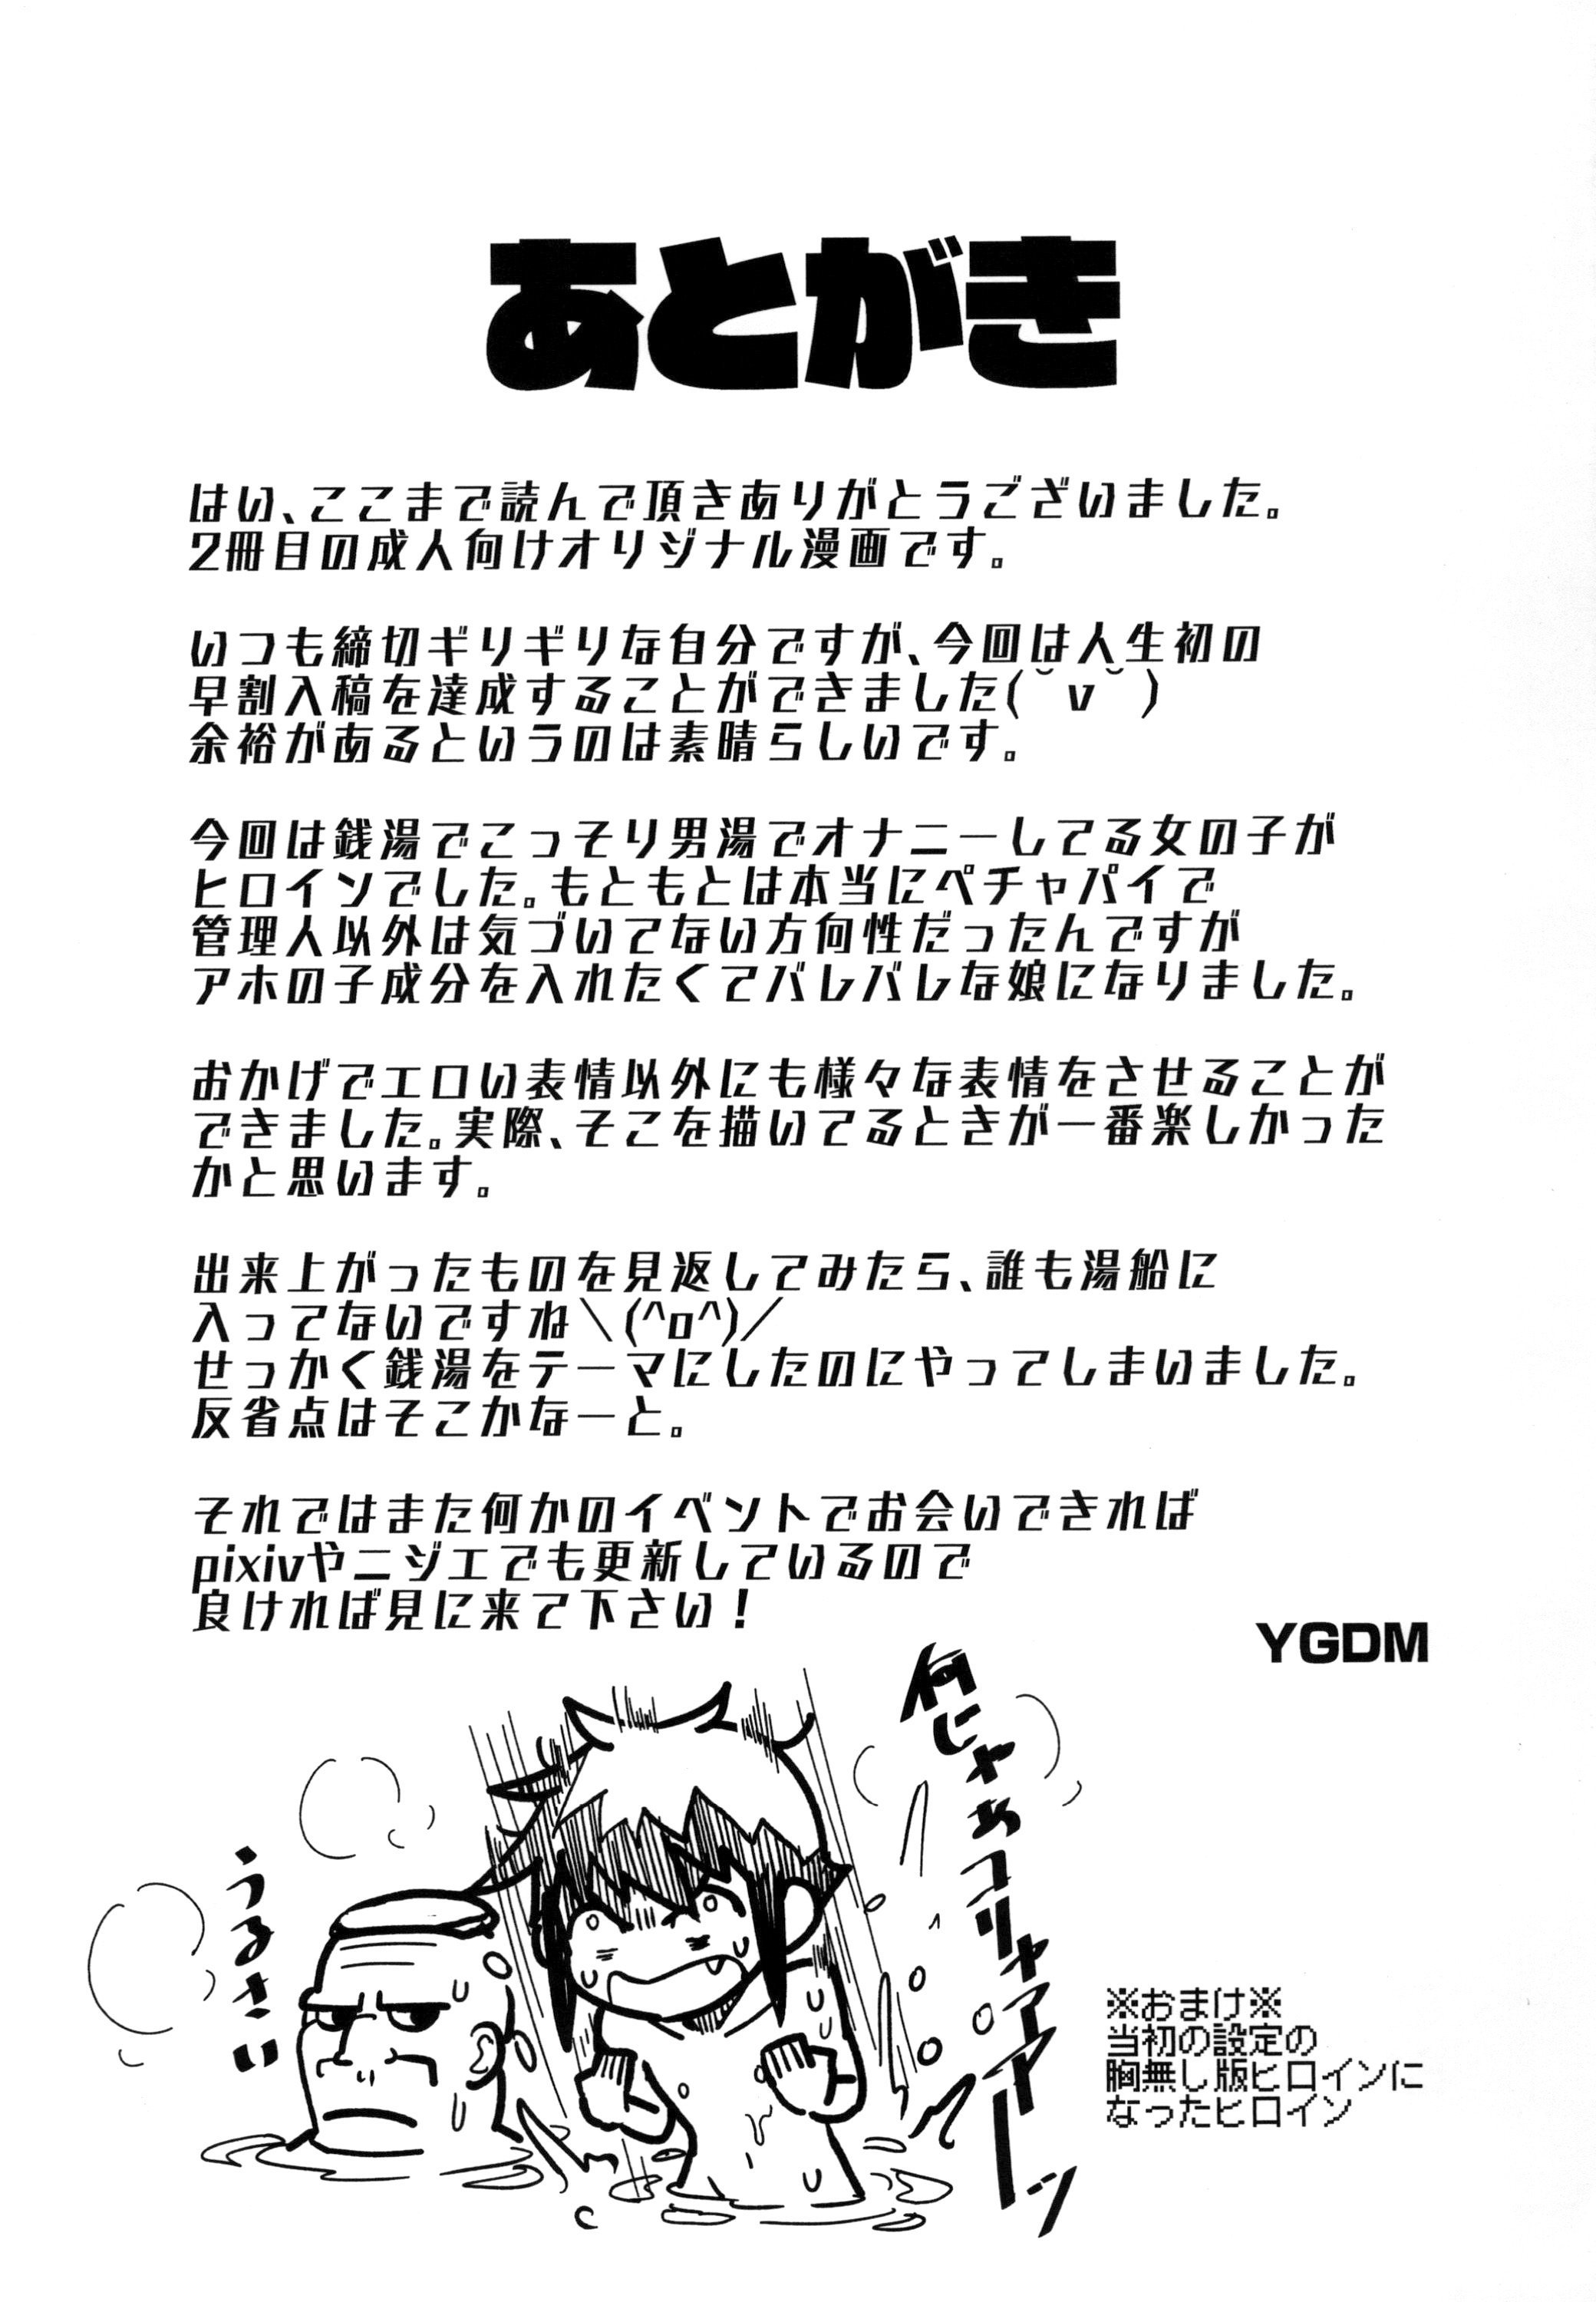 あとがき
はい、ここまで読んで頂きありがとうございました。
2冊目の成人向けオリジナル漫画です。
いつも締切ギリギリな自分ですが、今回は人生初の
早割入稿を達成することができました(˘v˘)
余裕があるというのは素晴らしいです。
今回は銭湯でこっそり男湯でオナニーしてる女の子が
ヒロインでした。もともとは本当にペチャパイで
管理人以外は気づいてない方向性だったんですが
アホの子成分を入れたくてバレバレな娘になりました。
おかげでエロい表情以外にも様々な表情をさせることが
できました。実際、そこを描いてるときが一番楽しかった
かと思います。
出来上がったものを見返してみたら、誰も湯船に
入ってないですね＼(^o^)／
せっかく銭湯をテーマにしたのにやってしまいました。
反省点はそこかなーと。
それではまた何かのイベントでお会いできれば
pixivやニジエでも更新しているので
良ければ見に来て下さい！
YGDM
何じゃあコリャアアーッ
うるさい
※おまけ※
当初の設定の
胸無し版ヒロインに
なったヒロイン